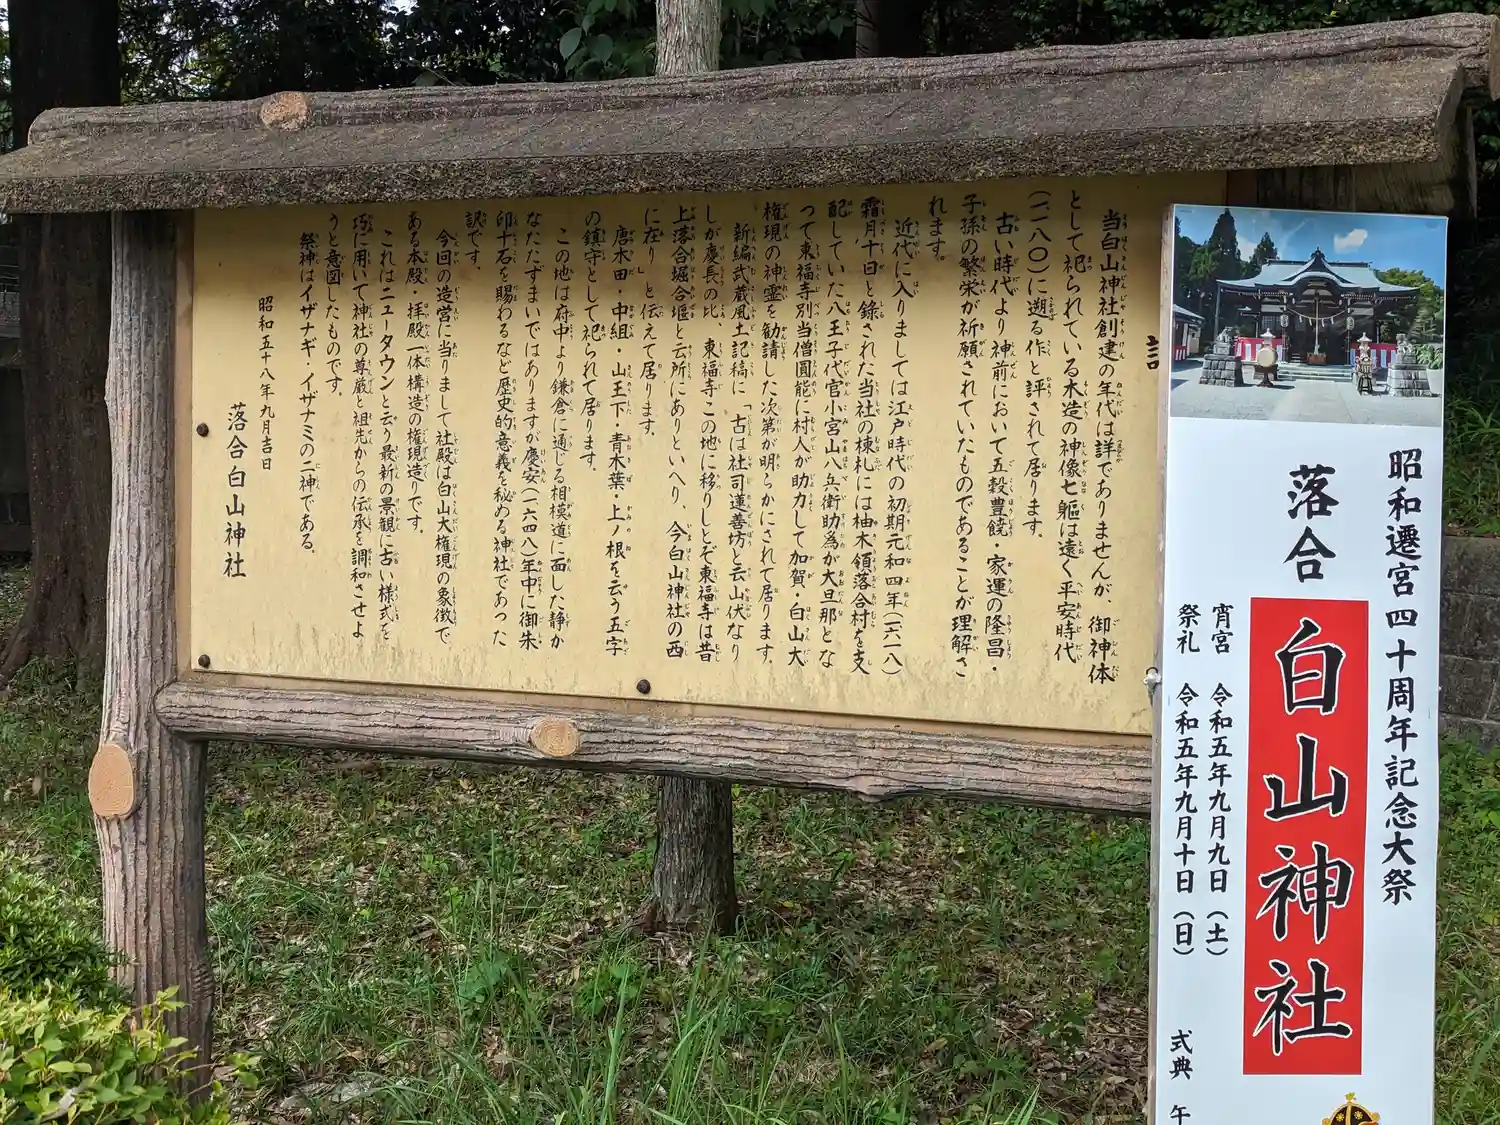 昭和遷宮四十周年記念大祭
落合
白山神社
宵宮 令和五年九月九日（土）
祭礼 令和五年九月十日（日）
式典 午
当白山神社創建の年代は詳でありませんが、御神体
として祀られている木造の神像七軀は遠く平安時代
（一一八〇）に遡る作と評されて居ります。
古い時代より神前において五穀豊饒・家運の隆昌・
子孫の繁栄が祈願されていたものであることが理解さ
れます。
近代に入りましては江戸時代の初期元和四年（一六一八）
霜月十日と錄された当社の棟札には柚木領落合村を支
配していた八王子代官小宮山八兵衛助為が大旦那とな
つて東福寺別当僧圓能に村人が助力して加賀・白山大
権現の神霊を勧請した次第が明らかにされて居ります。
新編武蔵風土記稿に「古は社司蓮善坊と云山伏なり
しが慶長の比、東福寺この地に移りしとぞ東福寺は昔
上落合堀合堰と云所にありといへり、今白山神社の西
に在り」と伝えて居ります。
唐木田・中組・山王下・青木葉・上ノ根を云う五字
の鎮守として祀られて居ります。
この地は府中より鎌倉に通じる相模道に面した静か
なたたずまいではありますが慶安（一六四八）年中に御朱
印十石を賜わるなど歴史的意義を秘める神社であった
訳です。
今回の造営に当りまして社殿は白山大権現の象徴で
ある本殿・拝殿一体構造の権現造りです。
これはニュータウンと云う最新の景観に古い様式を
巧に用いて神社の尊厳と祖先からの伝承を調和させよ
うと意図したものです。
祭神はイザナギ・イザナミの二神である。
昭和五十八年九月吉日
落合白山神社